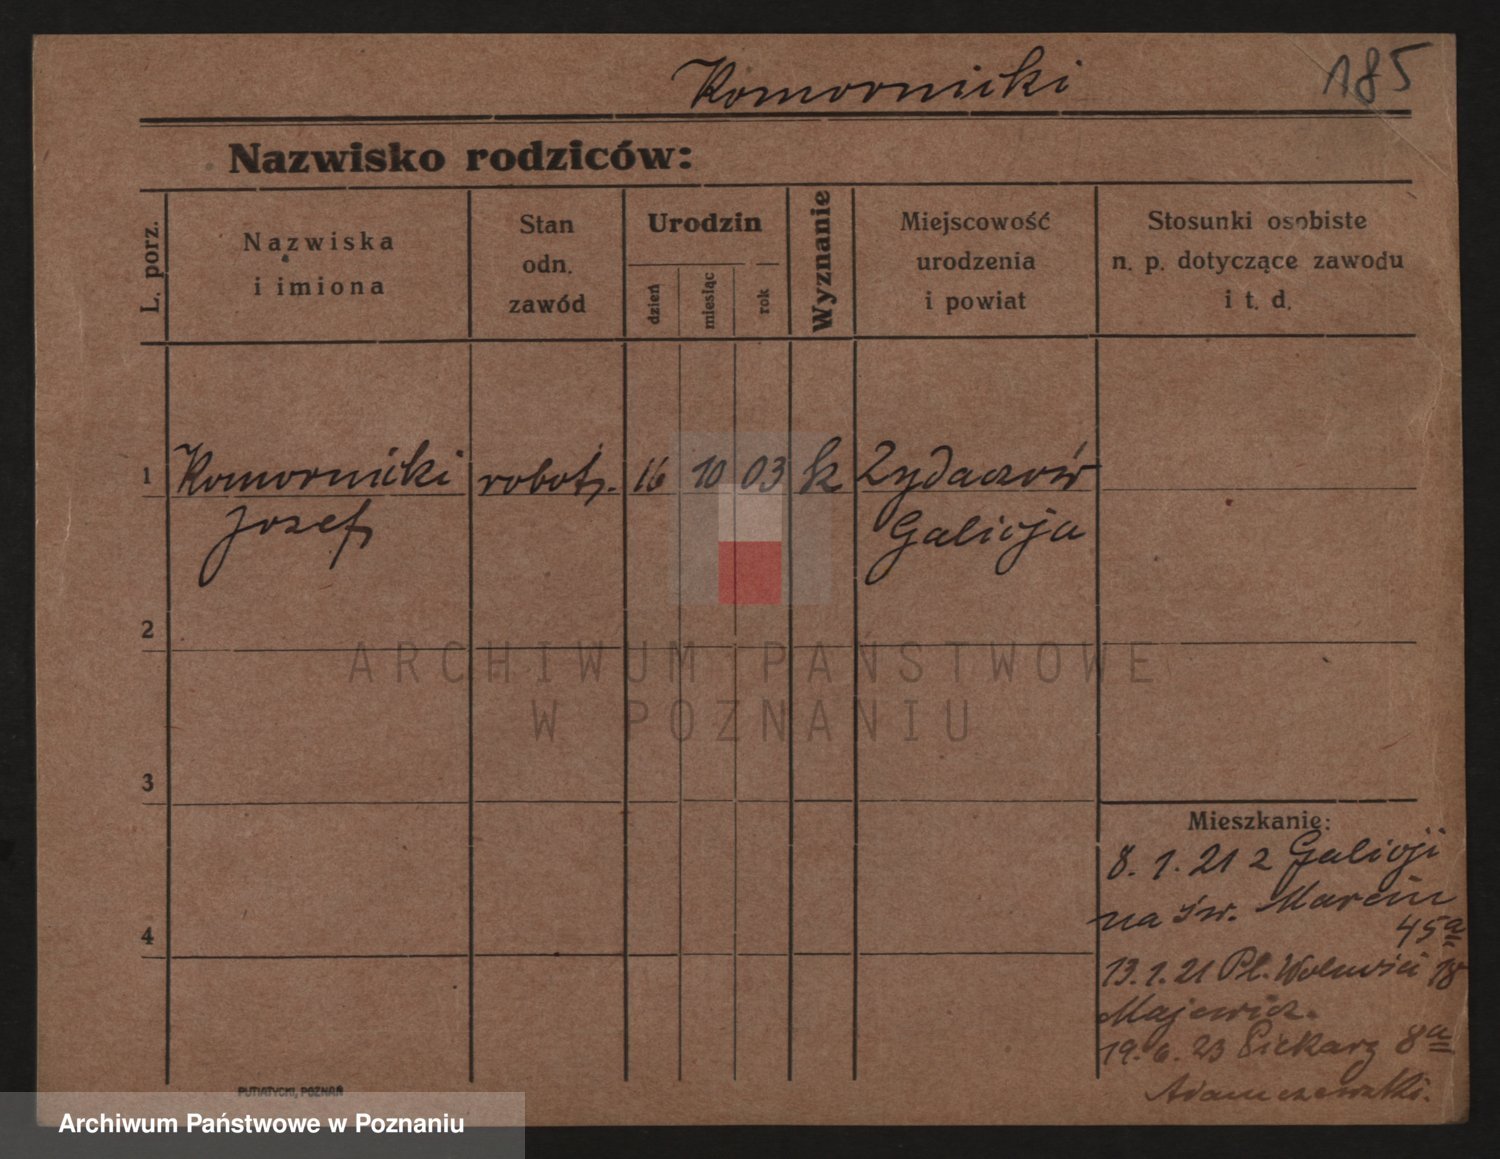 Komornicki
185
Nazwisko rodziców:
L. porz.
Nazwiska
i imiona
Stan
odn.
zawód
Urodzin
dzień
miesiąc
rok
Wyznanie
Miejscowość
urodzenia
i powiat
Stosunki osobiste
n. p. dotyczące zawodu
i t. d.
1 Komornicki robotn. 16 10 03 k Zydaczów
Jozef Galicja
2
3
4
ARCHIWUM PAŃSTWOWE
W POZNANIU
Mieszkanie:
8. 1. 21 z Galicji
na św. Marcin
45a
13. 1. 21 Pl. Wolności 18
Majewicz.
19. 6. 23 Piekary 8a
Adamczewski.
PUTIATYCKI, POZNAŃ
Archiwum Państwowe w Poznaniu